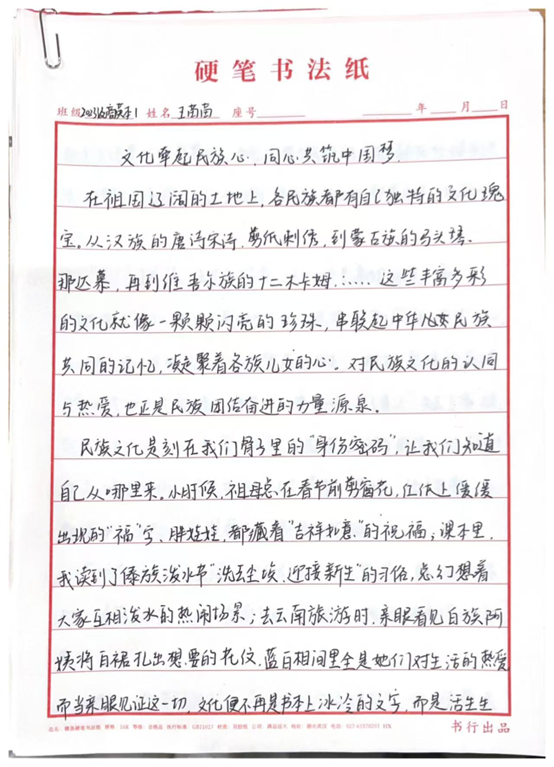 硬笔书法纸
班级 姓名 王苗苗 座号 年 月 日
文化牵起民族心,同心共筑中国梦.
在祖国辽阔的土地上,各民族都有自己独特的文化瑰
宝。从汉族的唐诗宋诗,剪纸刺绣,到蒙古族的马头琴.
那达慕,再到维吾尔族的十二木卡姆……这些丰富多彩
的文化就像一颗颗闪亮的珍珠,串联起中华儿女民族
共同的记忆,凝聚着各族儿女的心。对民族文化的认同
与热爱,也正是民族团结奋进的力量源泉。
民族文化是刻在我们骨子里的“身份密码”,让我们知道
自己从哪里来。小时候,祖母总在春节前剪窗花,红纸上缓缓
出现的“福”字、胖娃娃,都藏着“吉祥如意”的祝福;课本里,
我读到了傣族泼水节“洗去尘埃,迎接新生”的习俗,总幻想着
大家互相泼水的热闹场景;去云南旅游时,亲眼看见白族阿
姨将白裙扎出想要的花纹,蓝白相间里全是她们对生活的热爱
而当亲眼见证这一切,文化便不再是书本上冰冷的文字,而是活生生
书行出品